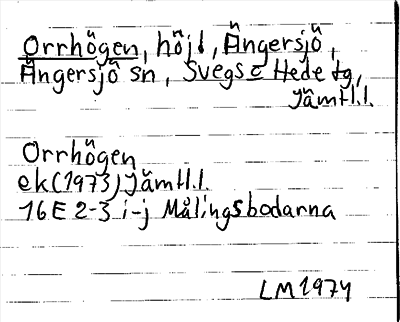 Orrhögen, höjd, Ängersjö,
Ängersjö sn, Svegs o Hede tg,
Jämtl.l.
Orrhögen
ek(1973)Jämtl.l.
16E 2-3 i-j Målingsbodarna
LM1974